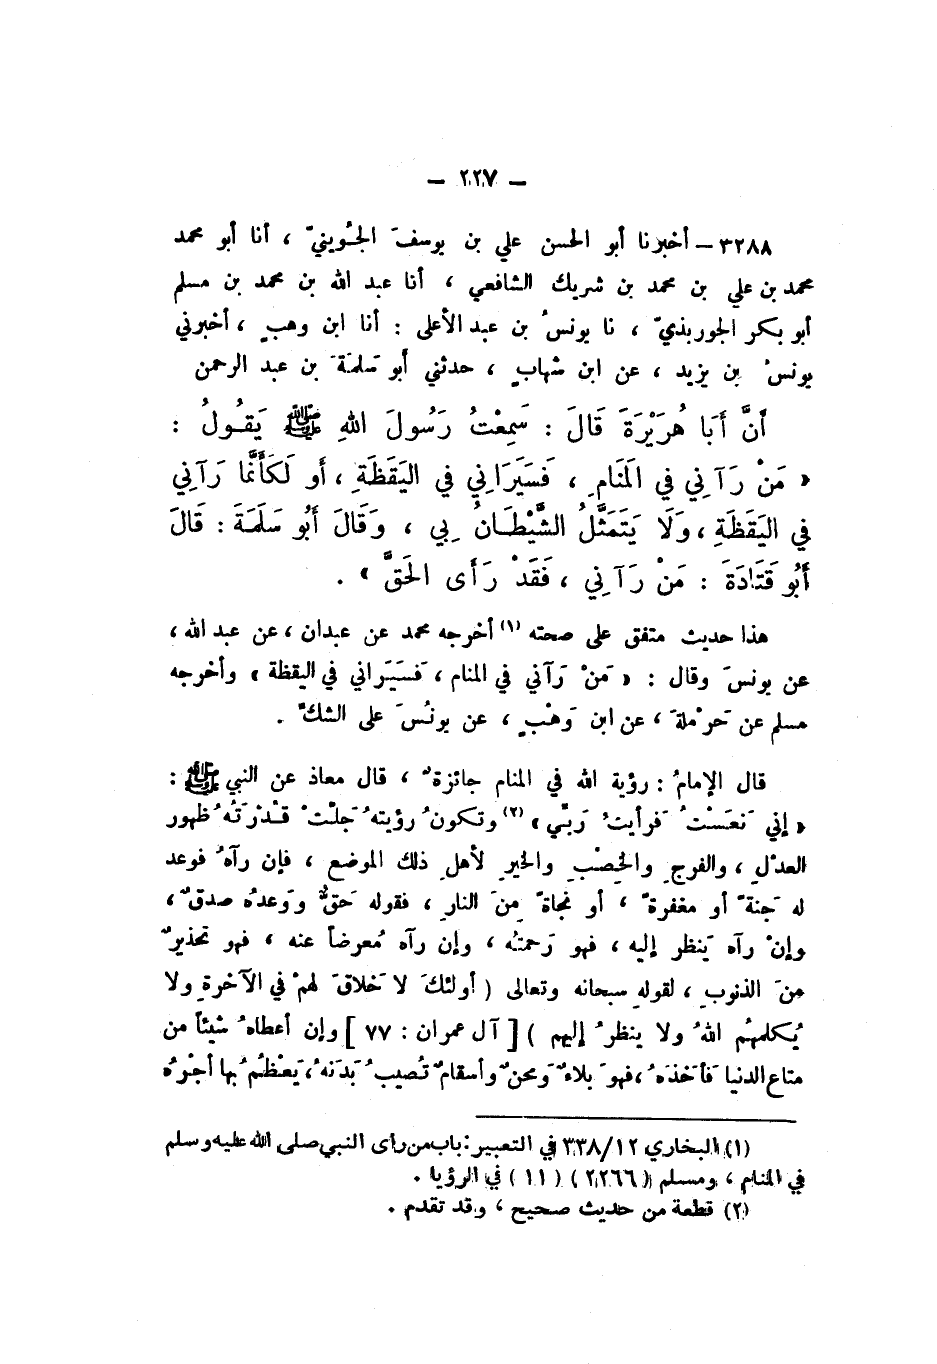 – ٢٢٧ –
٣٢٨٨ – أخبرنا أبو الحسن علي بن يوسفَ الجُوينيّ ، أنا أبو محمد
محمد بن علي بن محمد بن شريك الشافعي ، أنا عبد الله بن محمد بن مسلم
أبو بكر الجوربذيّ ، نا يونسُ بن عبد الأعلى : أنا ابن وهبٍ ، أخبرني
يونسُ بن يزيد ، عن ابن شهابٍ ، حدثني أبو سَلمَةَ بن عبد الرحمن
أَنَّ أَبَا هُرَيْرَةَ قَالَ : سَمِعْتُ رَسُولَ اللهِ ﷺ يَقُولُ :
« مَنْ رَآنِي فِي المَنَامِ ، فَسَيَرَانِي فِي اليَقَظَةِ ، أَو لَكَأَنَّمَا رَآنِي
فِي اليَقَظَةِ ، وَلَا يَتَمَثَّلُ الشَّيْطَانُ بِي ، وَقَالَ أَبُو سَلَمَةَ : قَالَ
أَبُو قَتَادَةَ : مَنْ رَآنِي ، فَقَدْ رَأَى الحَقَّ » .
هذا حديث متفق على صحته (١) أخرجه محمد عن عبدان ، عن عبد الله ،
عن يونسَ وقال : « مَنْ رَآني في المنام ، فَسَيَراني في اليقظة » وأخرجه
مسلم عن حَرْملةَ ، عن ابن وَهْبٍ ، عن يونُسَ على الشكّ .
قال الإمامُ : رؤية الله في المنام جائزةٌ ، قال معاذ عن النبي ﷺ :
« إني نَعَسْتُ فَرأيتُ رَبّي » (٢) وتكونُ رؤيتهُ جَلتْ قدْرَتُهُ ظهور
العدْلِ ، والفرجِ والخِصْبِ والخيرِ لأهلِ ذلك الموضع ، فإن رآهُ فوعد
له جَنةً أو مغفرةً ، أو نجاةً مِنَ النارِ ، فقوله حَقٌّ وَوَعدُه صدقٌ ،
وإنْ رآه يَنظر إليه ، فهو رَحمتُه ، وإن رآه مُعرضاً عنه ، فهو تحذيرٌ
مِنَ الذنوبِ ، لقولهِ سبحانه وتعالى ( أولئكَ لا خَلاقَ لهمْ في الآخرةِ ولا
يُكلمهُم اللهُ ولا ينظرُ إليهم ) [ آل عمران : ٧٧ ] وإن أعطاهُ شيئاً من
متاع الدنيا فأخَذهُ ، فهوَ بلاءٌ وَمحنٌ وأسقامٌ تُصيبُ بَدَنهُ ، يَعظُمُ بها أجْرُه
(١) البخاري ٣٣٨/١٢ في التعبير : باب من رأى النبي صلى الله عليه وسلم
في المنام ، ومسلم (٢٢٦٦) (١١) في الرؤيا .
(٢) قطعة من حديث صحيح ، وقد تقدم .